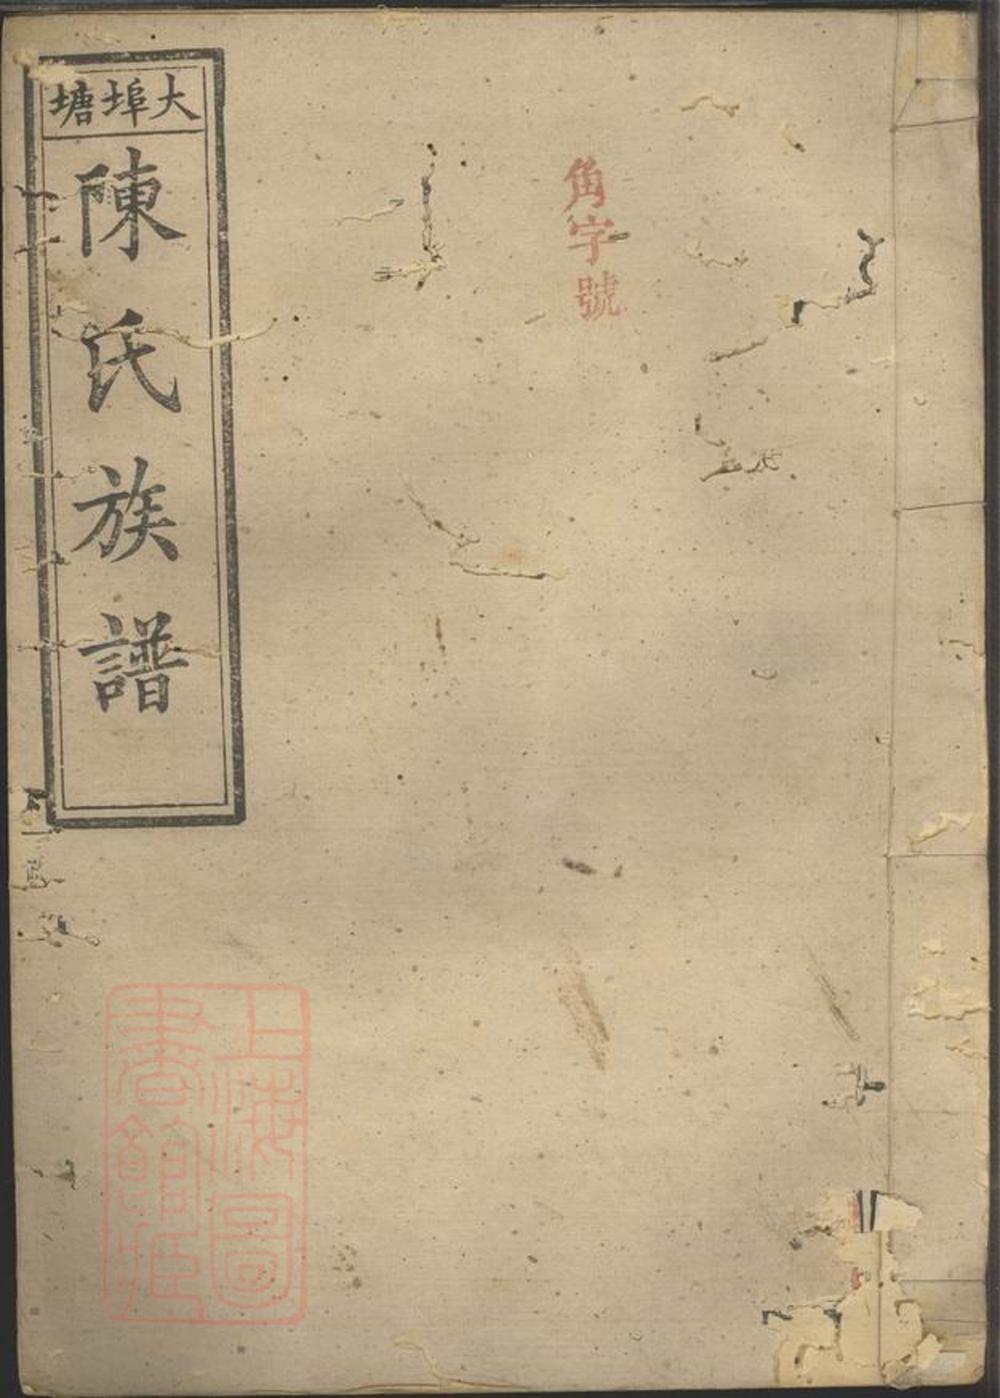 大埠塘
陳氏族譜
角字號
上海圖
書館藏